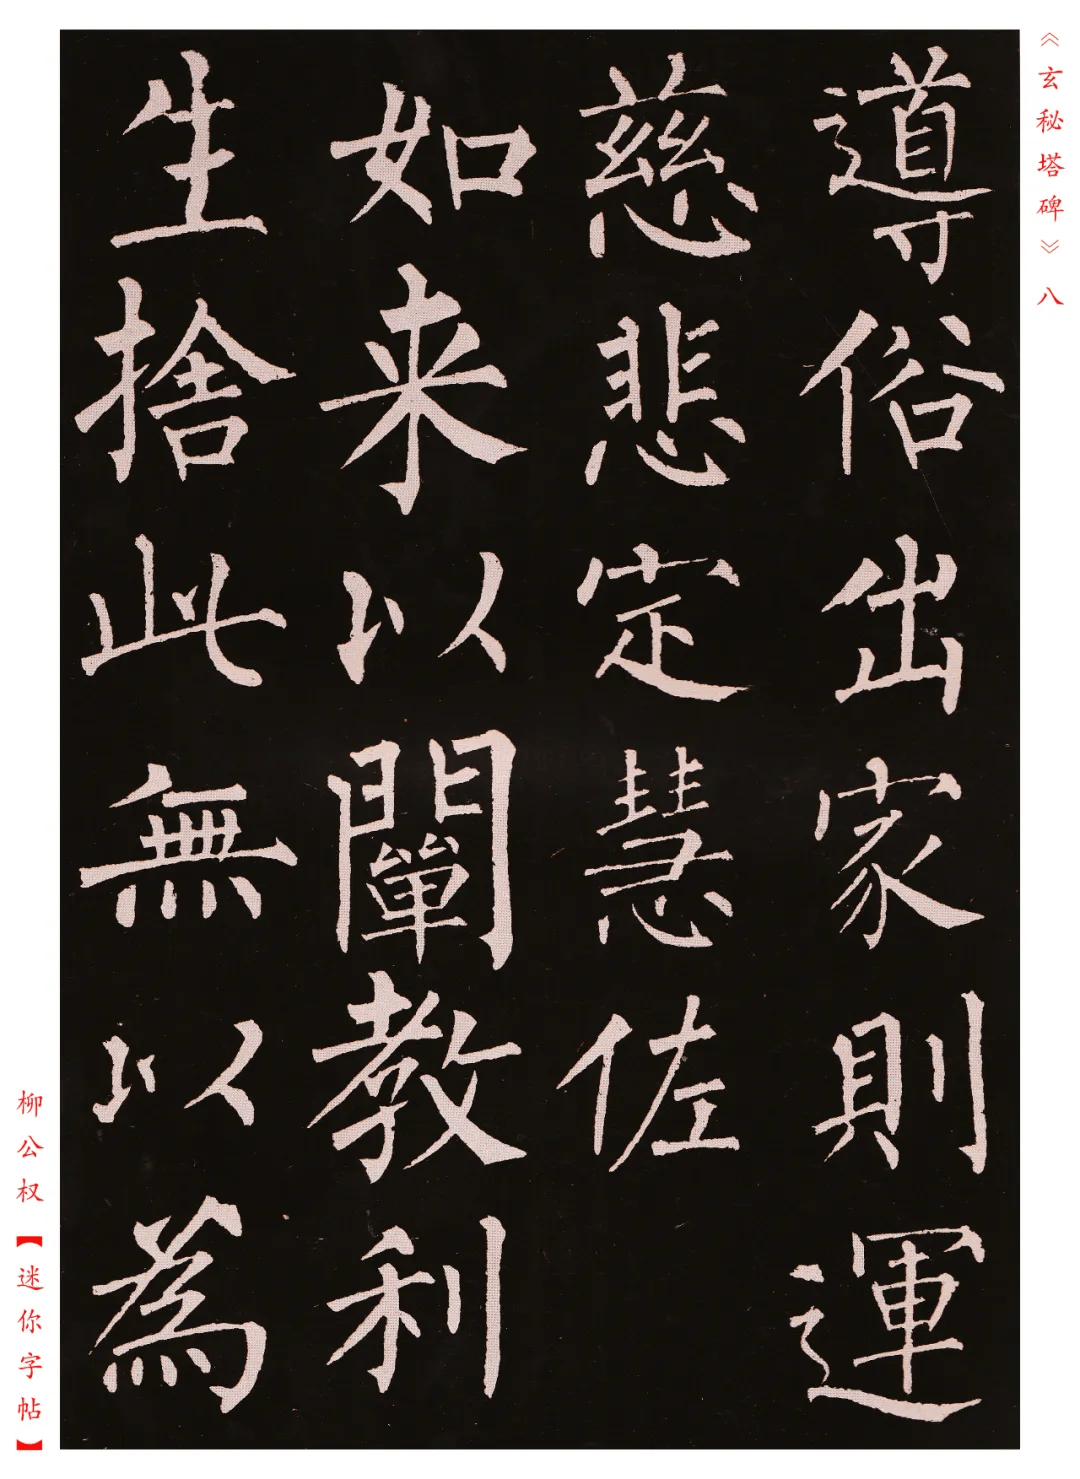 《玄秘塔碑》八
導俗出家則運
慈悲定慧佐
如来以闡教利
生捨此無以為
柳公权【迷你字帖】